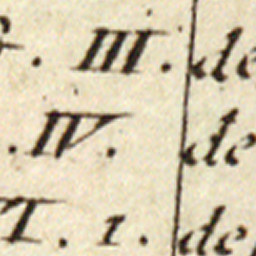 . III. de
. IV. de
I. 1. de